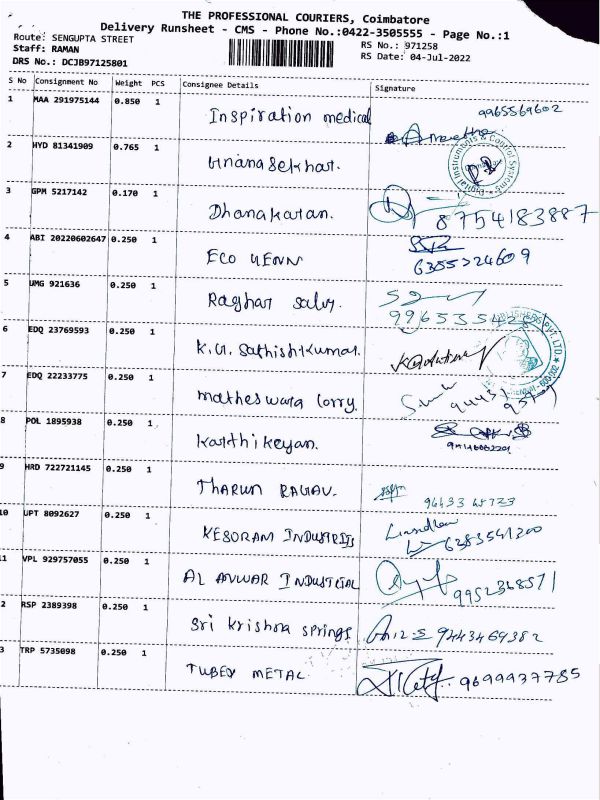 THE PROFESSIONAL COURIERS, Coimbatore
Delivery Runsheet - CMS - Phone No.:0422-3505555 - Page No.:1
Route: SENGUPTA STREET
Staff: RAMAN
DRS No.: DCJB97125801
RS No.: 971258
RS Date: 04-Jul-2022
S No Consignment No Weight PCS Consignee Details Signature
1 MAA 291975144 0.850 1 Inspiration medical 9965569602
2 HYD 81341909 0.765 1 Gnanasekhar.
Digital Instruments & Control Systems
3 GPM 5217142 0.170 1 Dhanakaran. 8754183887
4 ABI 20220602647 0.250 1 ECO GENN
5 UMG 921636 0.250 1 Raghav
6 EDQ 23769593 0.250 1 K.G. Sathishkumar.
PVT. LTD.
7 EDQ 22233775 0.250 1 Matheswara lorry.
8 POL 1895938 0.250 1 Karthikeyan.
9 HRD 722721145 0.250 1 THARUN RAGAV.
10 UPT 8092627 0.250 1 KESORAM INDUSTRIES 6383541300
11 VPL 929757055 0.250 1 AL ANWAR INDUSTRIAL 9952368571
2 RSP 2389398 0.250 1 Sri Krishna springs 9443469382
3 TRP 5735098 0.250 1 TUBEX METAL. 9699937785